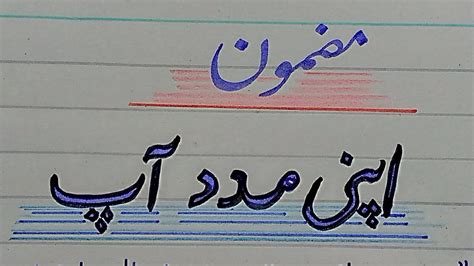 مضمون
اپنی مدد آپ